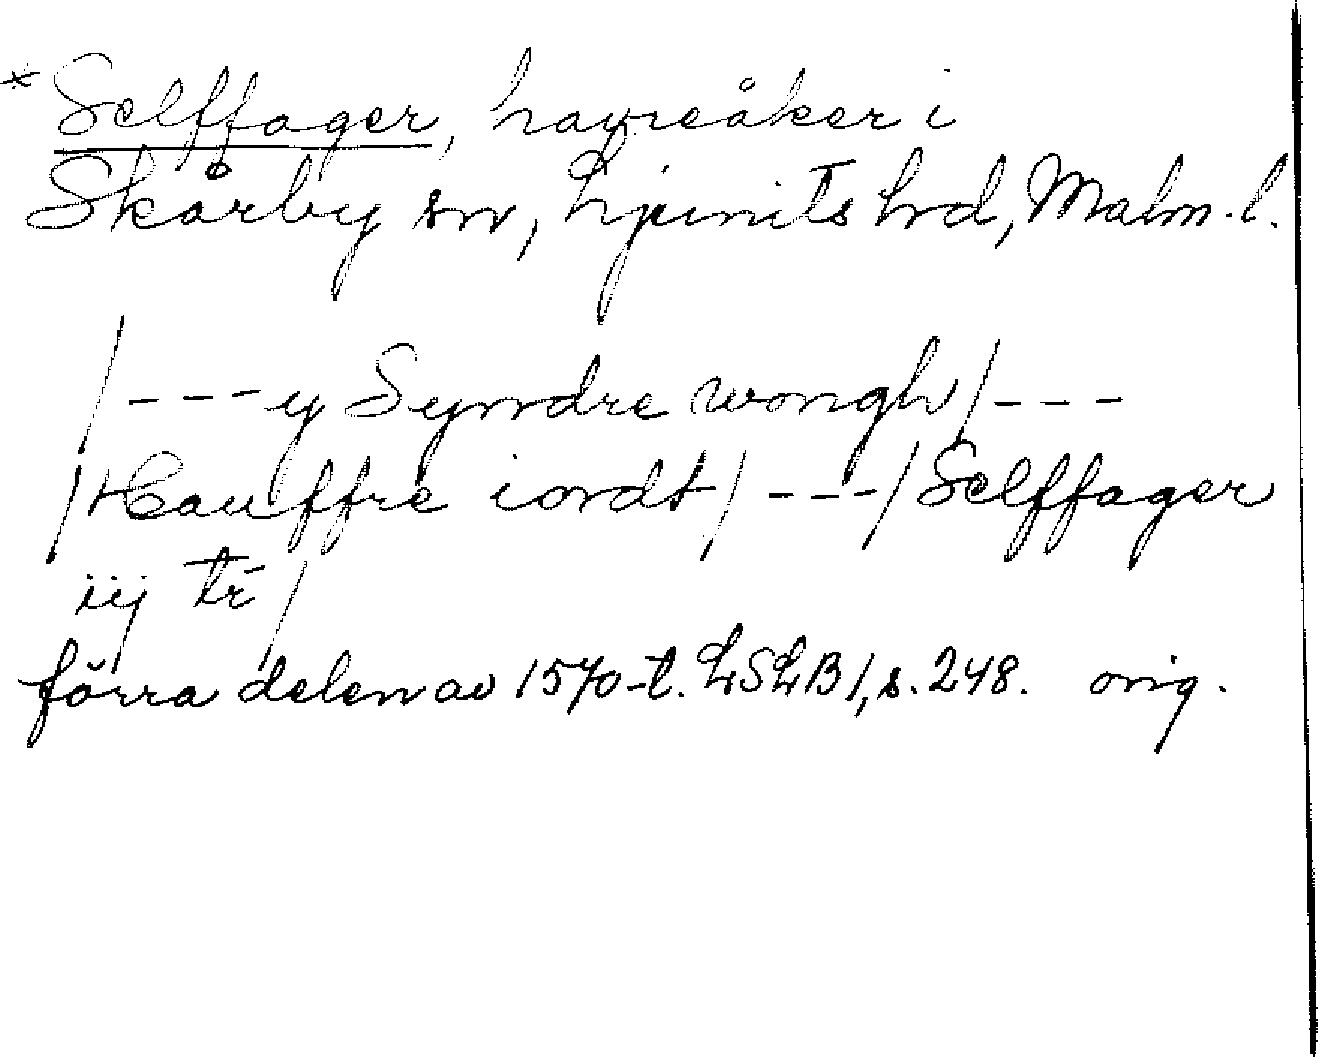 *Selffager, havreåker i
Skårby sn, Ljunits hrd, Malm. l.
/---y Syndre wongh/---
/Hauffre iordt/---/Selffager
iij tr/
förra delen av 1570-t. LSLB 1, s. 248. orig.